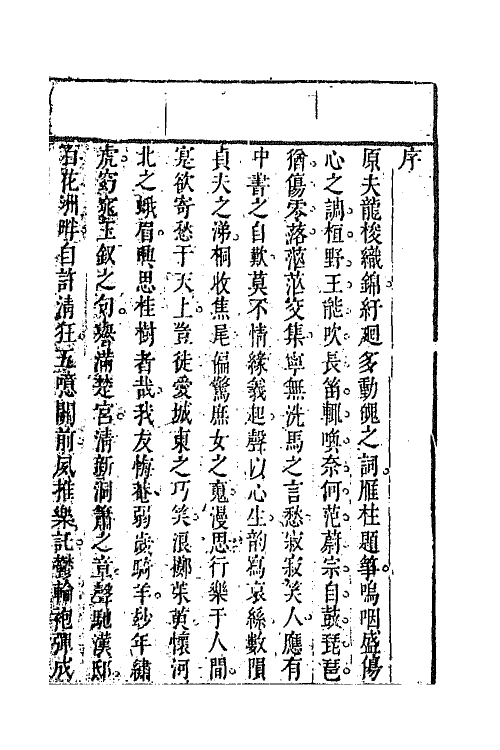 序
原夫龍梭織錦紆廻多動魄之詞雁柱題箏嗚咽盛傷
心之調桓野王能吹長笛輒喚奈何范蔚宗自鼓琵琶
猶傷零落茫茫交集寧無洗馬之言愁寂寂笑人應有
中書之自歎莫不情緣義起聲以心生韵寫哀絲數隕
貞夫之涕桐收焦尾偏驚庶女之魂漫思行樂于人間
寔欲寄愁于天上豈徒愛城東之巧笑浪擲朱黃懷河
北之蛾眉興思桂樹者哉我友悔菴弱歲騎羊紗年繡
虎窈窕玉釵之句譽滿楚宮清新洞簫之章聲馳漢邸
百花洲畔自許清狂五噫關前夙推樂託鬱輪袍彈成